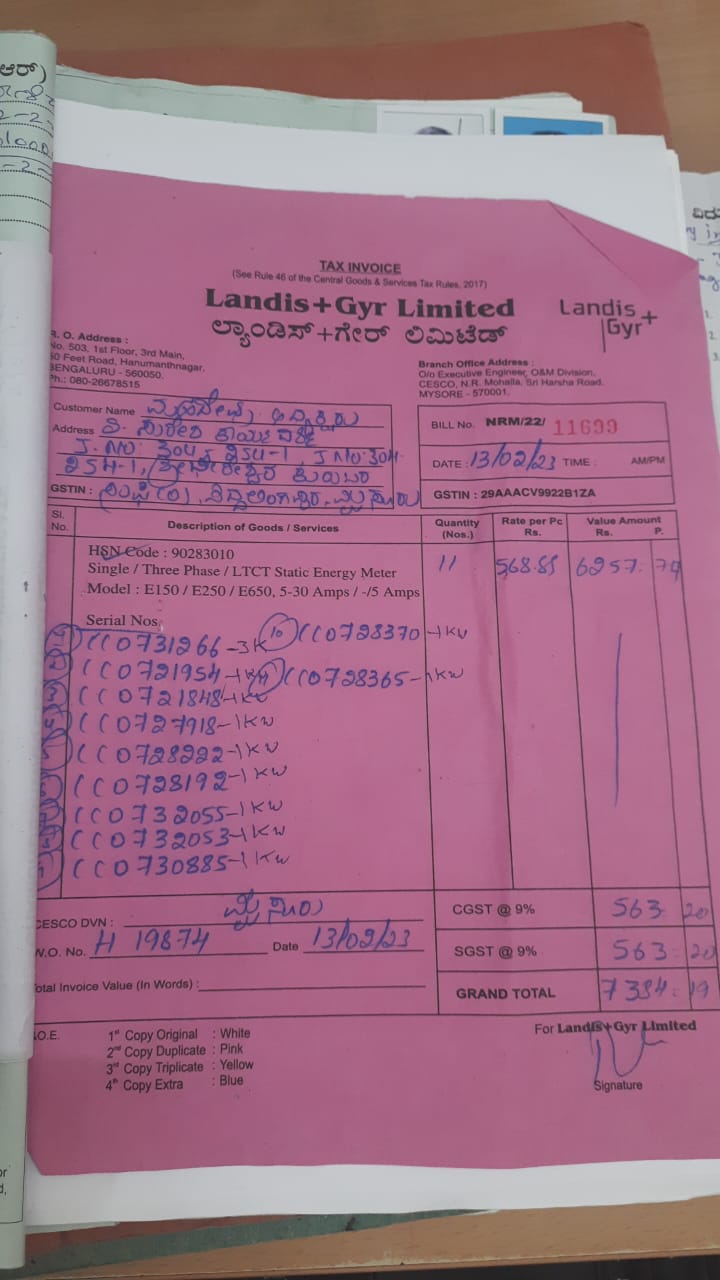 ಆರ್)
TAX INVOICE
(See Rule 46 of the Central Goods & Services Tax Rules, 2017)
Landis+Gyr Limited
ಲ್ಯಾಂಡಿಸ್+ಗೇರ್ ಲಿಮಿಟೆಡ್
Landis+
Gyr
R. O. Address :
No. 503, 1st Floor, 3rd Main,
60 Feet Road, Hanumanthnagar,
BENGALURU - 560050.
Ph.: 080-26678515
Branch Office Address :
O/o Executive Engineer, O&M Division,
CESCO, N.R. Mohalla, Sri Harsha Road.
MYSORE - 570001.
Customer Name
Address
J. NO: 304, 254-1, J NO: 304
254-1,
GSTIN : ಮೈಸೂರು
BILL No. NRM/22/ 11699
DATE : 13/02/23 TIME : AM/PM
GSTIN : 29AAACV9922B1ZA
Sl. No. Description of Goods / Services Quantity (Nos.) Rate per Pc Rs. Value Amount Rs. P.
HSN Code : 90283010
Single / Three Phase / LTCT Static Energy Meter
Model : E150 / E250 / E650, 5-30 Amps / -/5 Amps
11 568.89 6257. 79
Serial Nos.
CC0731266-3K 10 CC0728370-1KW
CC0721954-1KW CC0728365-1KW
CC0721848-1KW
CC0727918-1KW
CC0728222-1KW
CC0728192-1KW
CC0732055-1KW
CC0732053-1KW
CC0730885-1KW
CESCO DVN : ಮೈಸೂರು
W.O. No. H 19874 Date 13/02/23
Total Invoice Value (In Words) :
CGST @ 9% 563 20
SGST @ 9% 563 20
GRAND TOTAL 7384 19
.O.E.
1st Copy Original : White
2nd Copy Duplicate : Pink
3rd Copy Triplicate : Yellow
4th Copy Extra : Blue
For Landis+Gyr Limited
Signature